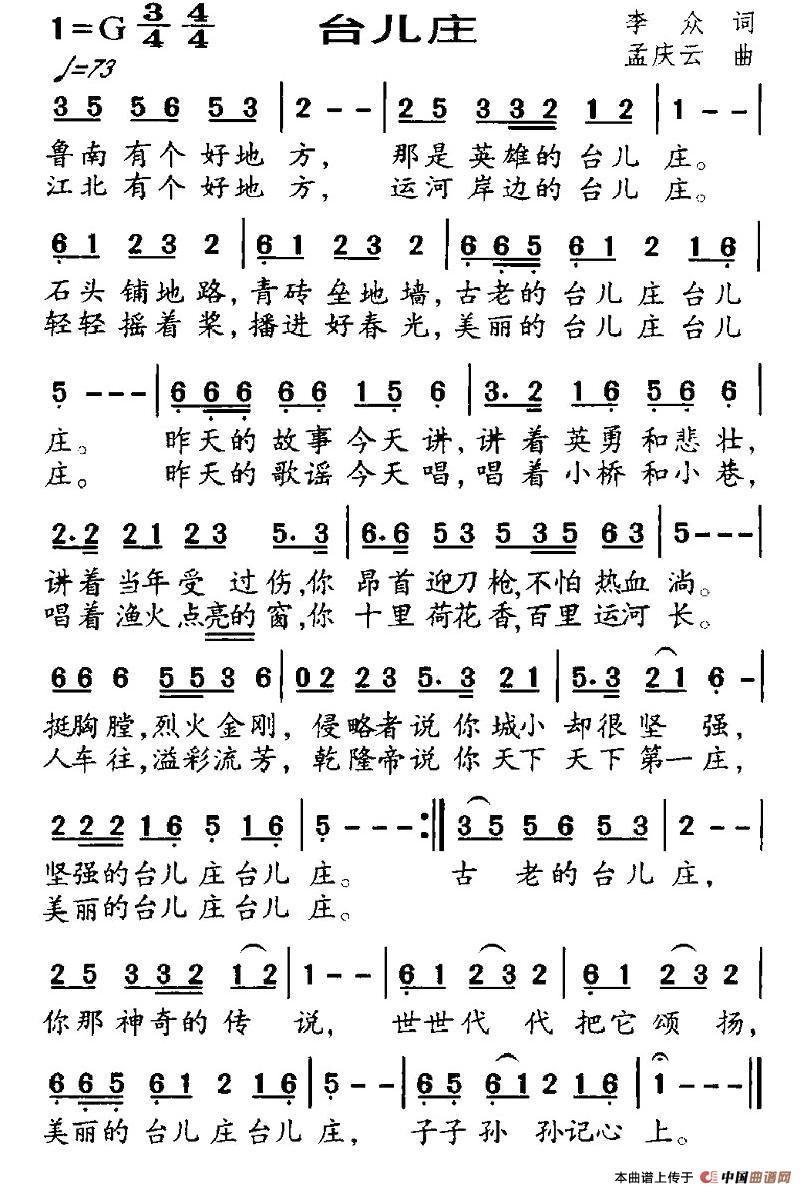 1=G 3/4 4/4 台儿庄 李众 词
♩=73 孟庆云 曲
3 5 5 6 5 3 | 2 - - | 2 5 3 3 2 1 2 | 1 - - |
鲁南有个好地方， 那是英雄的台儿庄。
江北有个好地方， 运河岸边的台儿庄。
6 1 2 3 2 | 6 1 2 3 2 | 6 6 5 6 1 2 1 6 |
石头铺地路，青砖垒地墙，古老的台儿庄台儿
轻轻摇着桨，播进好春光，美丽的台儿庄台儿
5 - - - | 6 6 6 6 6 1 5 6 | 3. 2 1 6 5 6 6 |
庄。 昨天的故事今天讲，讲着英勇和悲壮，
庄。 昨天的歌谣今天唱，唱着小桥和小巷，
2. 2 2 1 2 3 5. 3 | 6. 6 5 3 5 3 5 6 3 | 5 - - - |
讲着当年受过伤，你昂首迎刀枪，不怕热血淌。
唱着渔火点亮的窗，你十里荷花香，百里运河长。
6 6 6 5 5 3 6 | 0 2 2 3 5. 3 2 1 | 5. 3 2 1 6 - |
挺胸膛，烈火金刚，侵略者说你城小却很坚强，
人车往，溢彩流芳，乾隆帝说你天下天下第一庄，
2 2 2 1 6 5 1 6 | 5 - - - :| 3 5 5 6 5 3 | 2 - - |
坚强的台儿庄台儿庄。 古老的台儿庄，
美丽的台儿庄台儿庄。
2 5 3 3 2 1 2 | 1 - - | 6 1 2 3 2 | 6 1 2 3 2 |
你那神奇的传说， 世世代代把它颂扬，
6 6 5 6 1 2 1 6 | 5 - - | 6 5 6 1 2 1 6 | 1 - - ‖
美丽的台儿庄台儿庄， 子子孙孙记心上。
本曲谱上传于 中国曲谱网